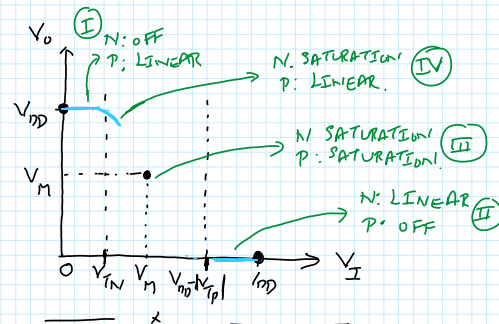 I
V₀
N: OFF
P: LINEAR
N. SATURATION
P: LINEAR.
IV
V_DD
N SATURATION
P: SATURATION.
III
V_M
N: LINEAR
P: OFF
II
0 V_TN V_M V_DD-|V_Tp| V_DD V_I